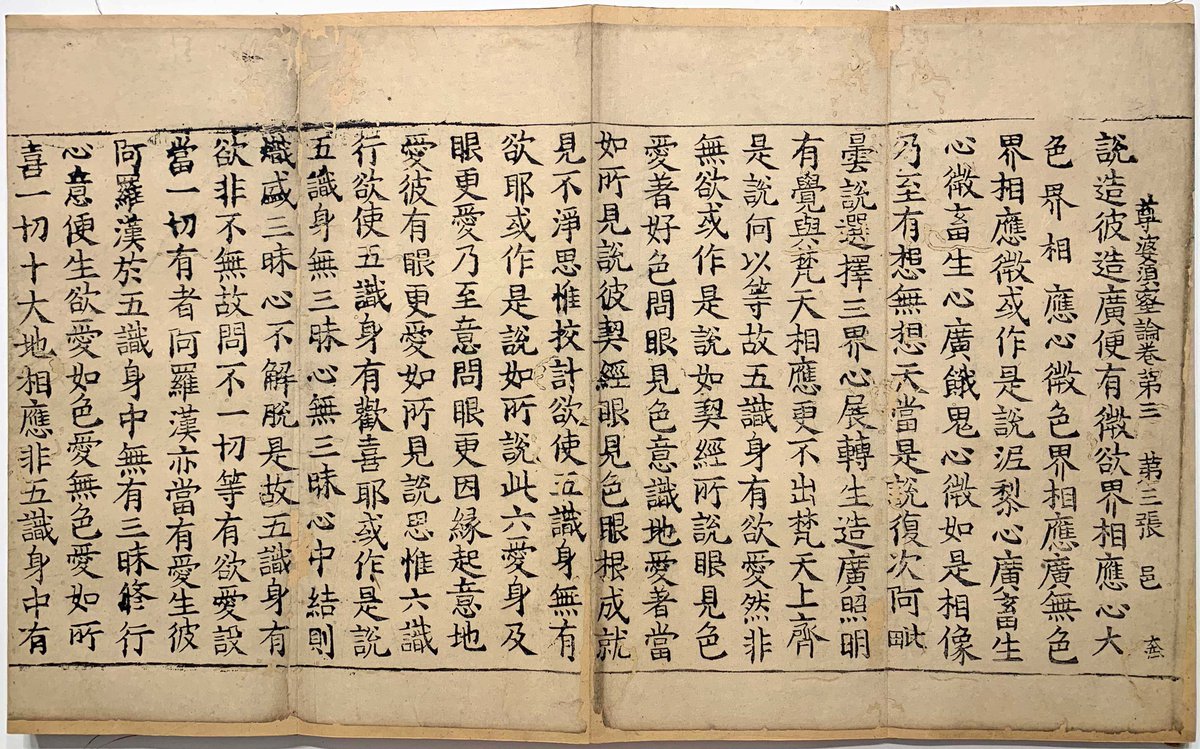 尊婆須蜜論卷第三　第三張　邑
說造彼造廣便有微欲界相應心大
色界相應心微色界相應廣無色
界相應微或作是說泥犁心廣畜生
心微畜生心廣餓鬼心微如是相像
乃至有想無想天當是說復次阿毗
曇說選擇三界心展轉生造廣照明
有覺與梵天相應更不出梵天上齊
是說何以等故五識身有欲愛然非
無欲或作是說如契經所說眼見色
愛著好色問眼見色意識地愛著當
如所見說彼契經眼見色眼根成就
見不淨思惟挍計欲使五識身無有
欲耶或作是說如所說此六愛身及
眼更愛乃至意問眼更因緣起意地
愛彼有眼更愛如所見說思惟六識
行欲使五識身有歡喜耶或作是說
五識身無三昧心無三昧心中結則
熾盛三昧心不解脫是故五識身有
欲非不無故問不一切等有欲愛設
當一切有者阿羅漢亦當有愛生彼
阿羅漢於五識身中無有三昧修行
心意便生欲愛如色愛無色愛如所
喜一切十大地相應非五識身中有